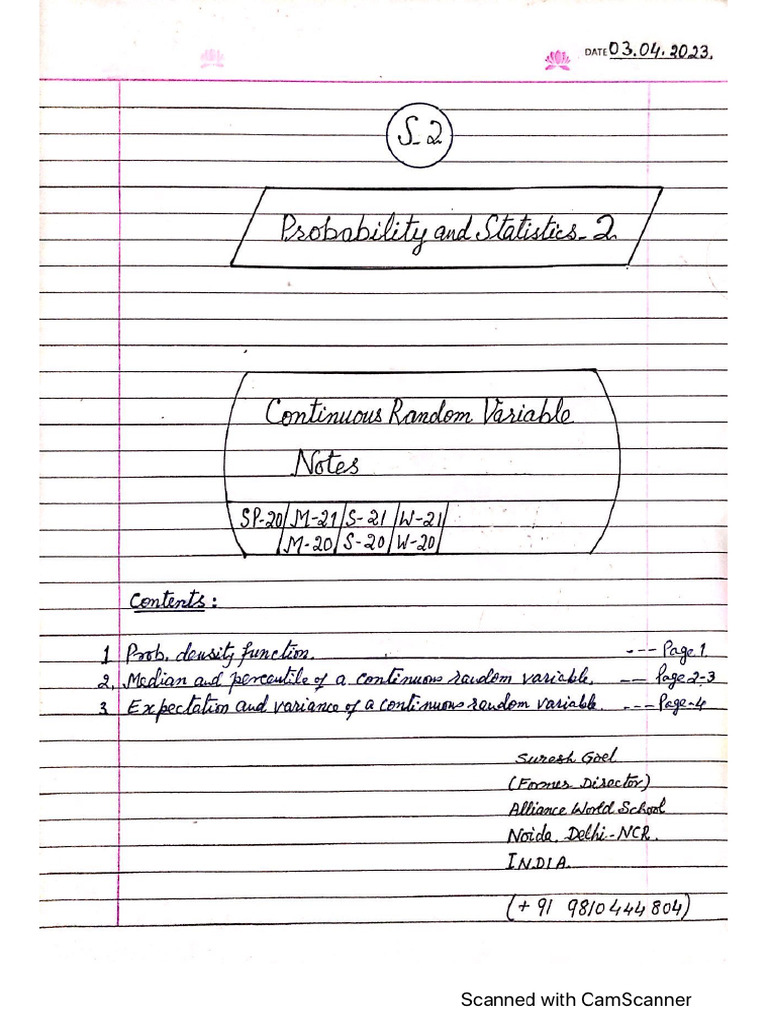 DATE 03.04.2023.
S-2
Probability and Statistics-2.
Continuous Random Variable
Notes
SP-20/M-21/S-21/W-21/
/M-20/S-20/W-20/
Contents:
1 Prob. density function. --- Page 1
2. Median and percentile of a continuous random variable. -- Page 2-3
3 Expectation and variance of a continuous random variable. --- Page-4
Suresh Goel
(Former Director)
Alliance World School
Noida, Delhi-NCR.
INDIA.
(+91 9810444804)
Scanned with CamScanner